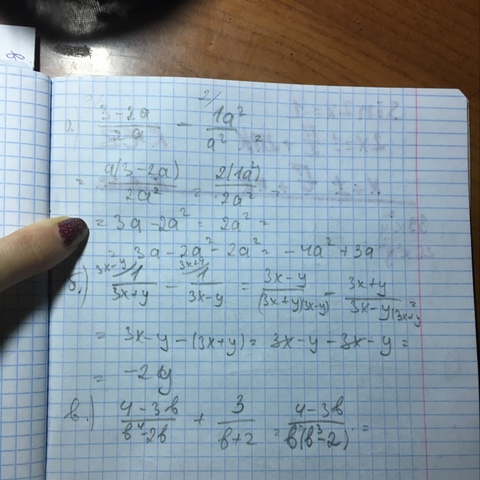 а. (3-2a)/(2a) - 2/ (1a²)/(a²) =
= (a(3-2a))/(2a²) = (2(1a²))/(2a²) =
= 3a - 2a² = 2a² =
= 3a - 2a² - 2a² = -4a² + 3a
б.) 3x-y/ 1/(3x+y) - 3x+y/ 1/(3x-y) = (3x-y)/((3x+y)(3x-y)) - (3x+y)/(3x-y)(3x+y) =
= 3x-y-(3x+y) = 3x-y-3x-y =
= -2y
в.) (4-3b)/(b⁴-2b) + 3/(b+2) = (4-3b)/(b(b³-2)) =